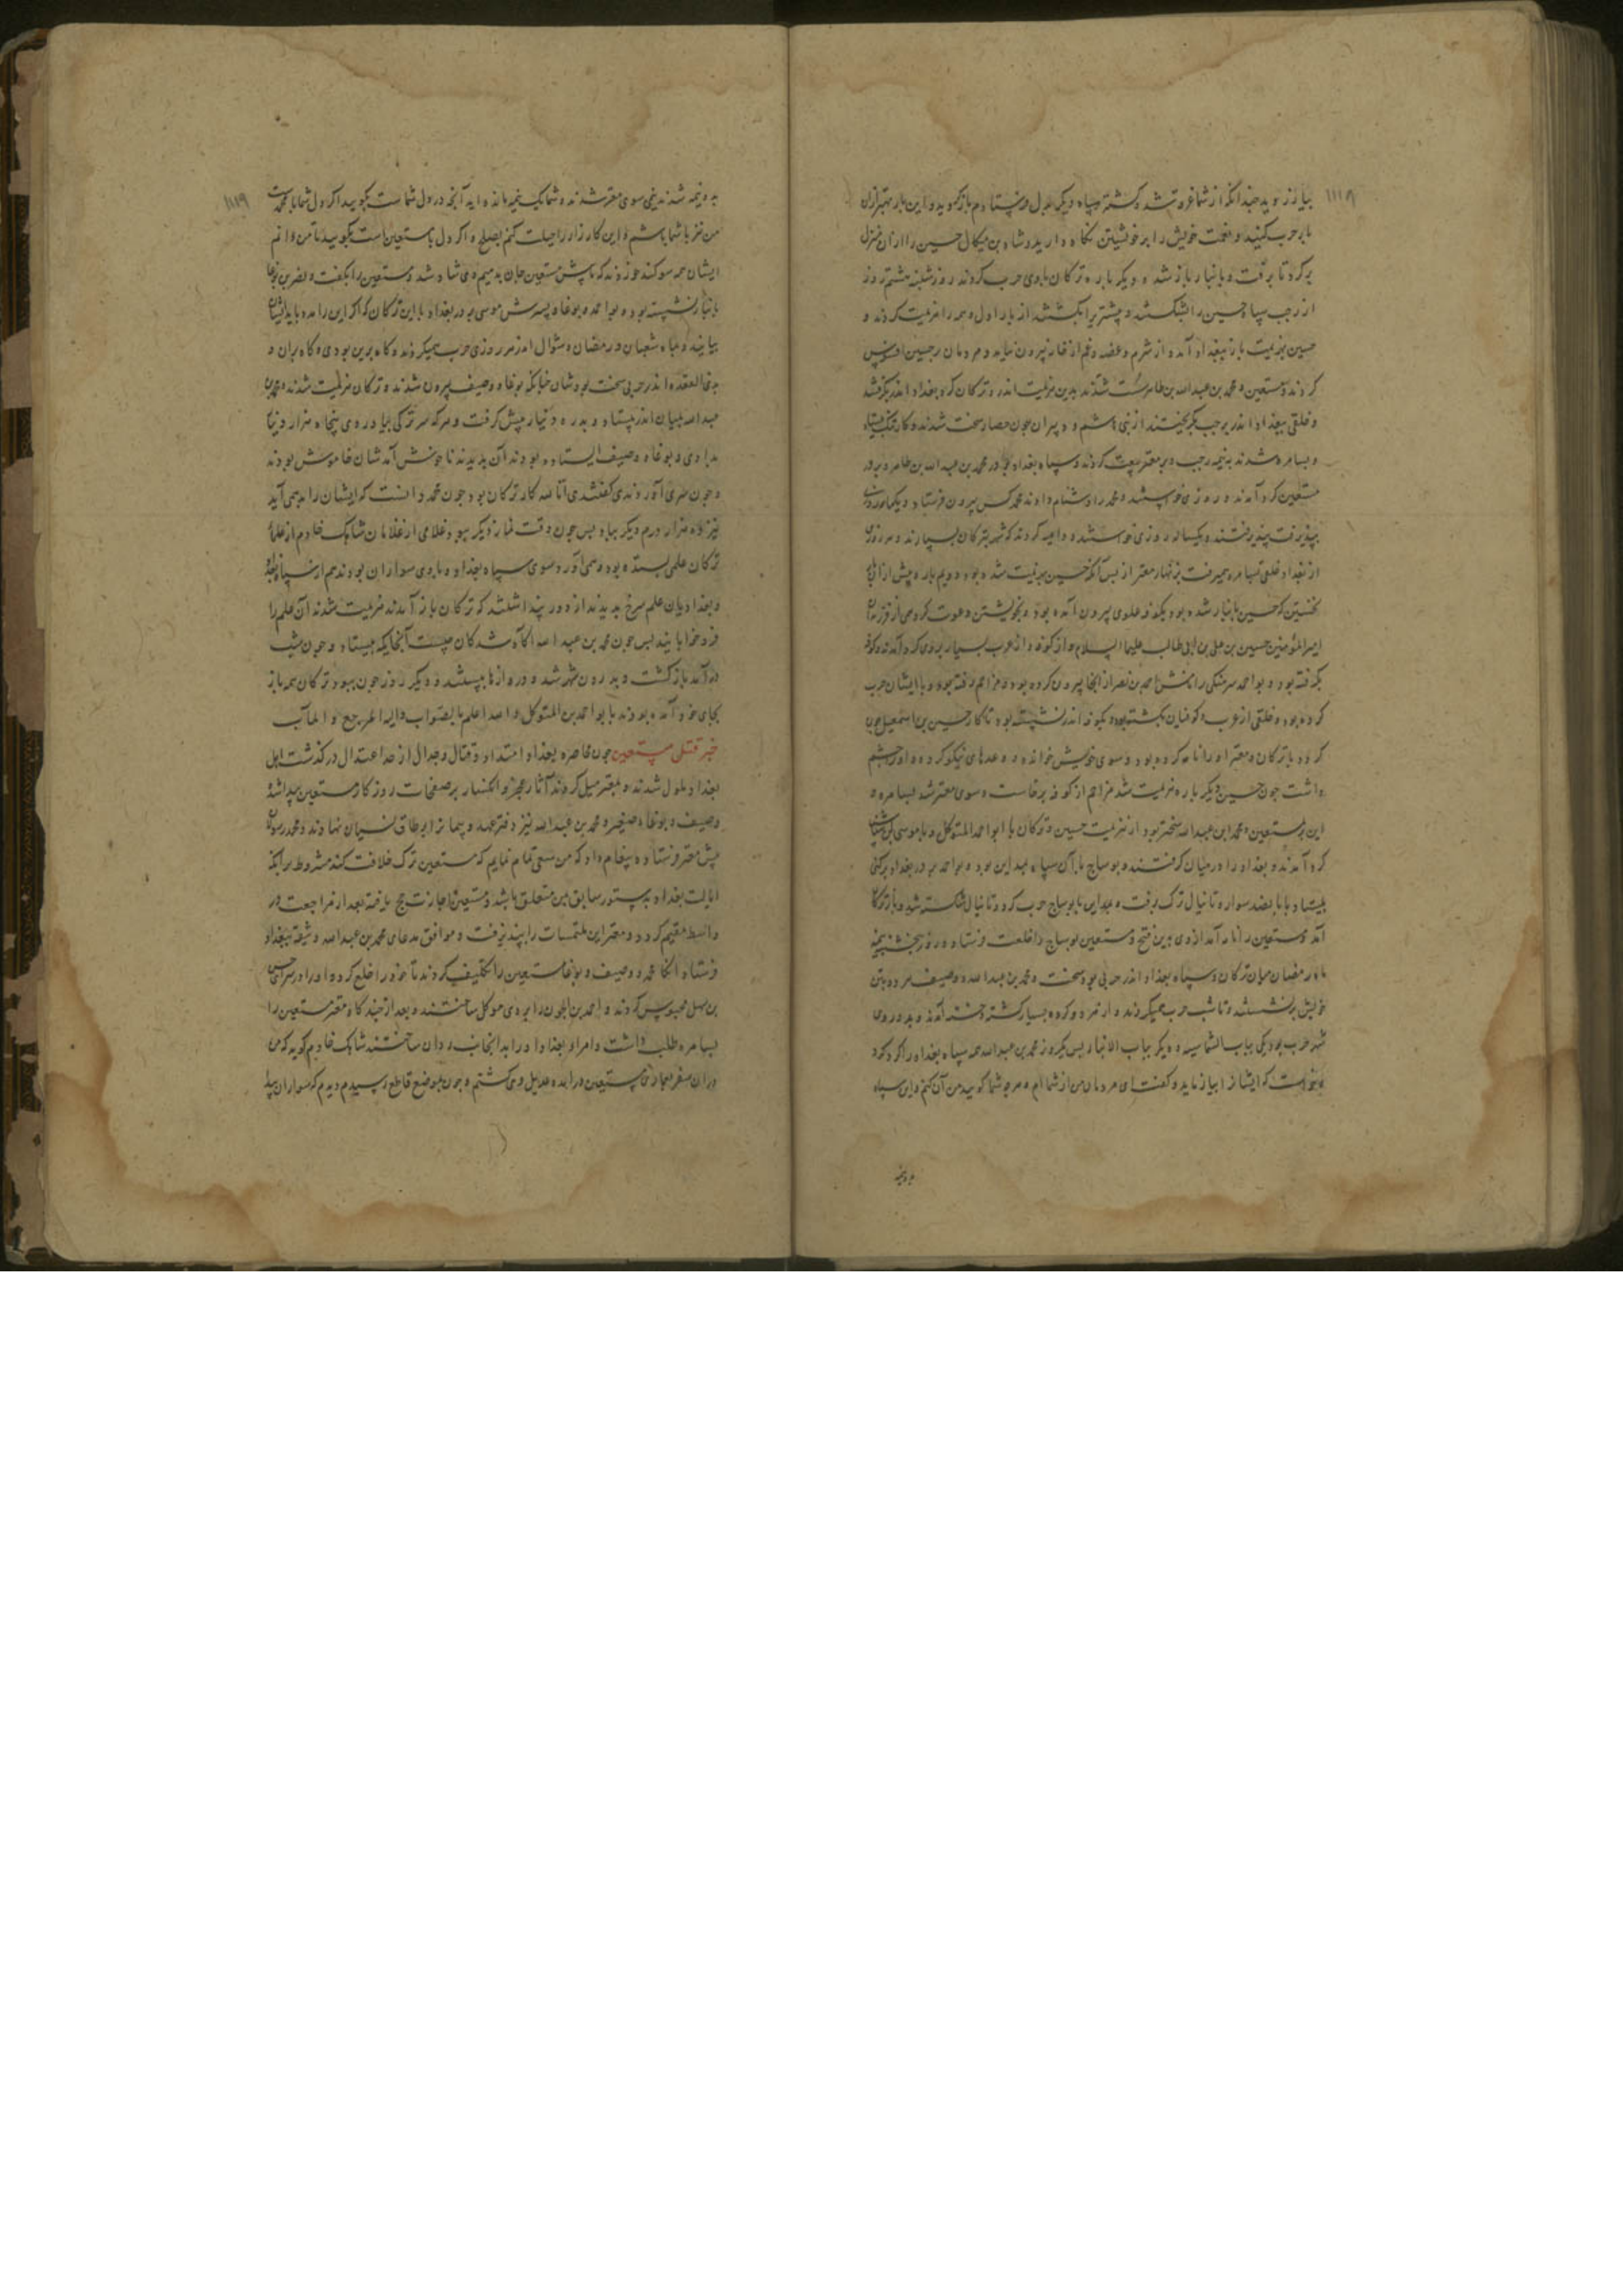 ۱۱۱۸
بیازارد بدخدانکه از شما غره تشد کشته سپاه دیکر بدل فرستادم بازکوید و این بار بهتر ازان
با بر حرب کنید و نعمت خویش را بر خویشتن نکاه دارید و شاه بن میکال حسین را از ان منزل
بر کرد تا برفت و بانبار باز شد و دیکر باره ترکان با وی حرب کردند روز شلنبه هشتم روز
از رجب سپاه حسین را بشکستند و بیشتر بکشتند از بار اول و همه را هزیمت کردند و
حسین بهزیمت باز ببغداد آمد و از شرم و غصه و غم از خانه بیرون نیامد و مردمان بر حسین افسوس
کردند و مستعین و محمد بن عبدالله بن طاهر سست شدند بدین هزیمت اندر و ترکان کرد بغداد اندر بکرفتند
و خلقی ببغداد اندر برجب بکریختند از بنی هاشم و دبیران چون حصار سخت شد
و بسامره شدند به نیمه رجب و بر معتز بیعت کردند و سپاه بغداد بر در محمد بن عبدالله بن طاهر و بر در
مستعین کرد آمدند و روزی خواستند و محمد را دشنام دادند محمد کس بیرون فرستاد و یکماهه روزی
بپذیرفت نپذیرفتند و یکساله روزی خواستند و دامیه کردند که شهر بترکان بسپارند و هر روزی
از بغداد خلقی بسامره همی رفت بزنهار معتز از پس آنکه حسین بهزیمت شده بود دویم باره پیش از آن
نخستین که حسین بانبار شده بود بکوفه علوی بیرون آمده بود و بخویشتن دعوت کرد می از فرزندان
امیرالمؤمنین حسین بن علی بن ابی طالب علیهما السلام و از کوفه و از عرب بسیار بروی کرد آمدند و کوفه
بکرفته بود و بو احمد سرهنکی را نامش احمد بن نصر از آنجا بیرون کرده بود و مزاحم رفته بود و با ایشان حرب
کرده بود و خلقی از عرب و کوفیان بکشته بود و بکوفه اندر نشسته بود تا کار حسین بن اسمعیل چون
کردد با ترکان و معتز او را نامه کرده بود و سوی خویش خوانده و وعدهای نیکو کرده و او چشم
داشت چون حسین دیکر باره هزیمت شد مزاحم از کوفه برخاست و سوی معتز شد بسامره و
این بر مستعین و محمد ابن عبدالله سختر بود از هزیمت حسین و ترکان با ابو احمد المتوکل و با موسی بن اشناس
کرد آمدند و بغداد را در میان کرفتند و بوساج با آن سپاه بمداین بود و بو احمد بر در بغداد بر کسی
بیستاد با پانصد سواره تا نیال ترک برفت و بمداین با بوساج حرب کرد و تا نیال شکسته شد و باز ترکان
آمد و مستعین را نامه آمد از وی بدین فتح و مستعین بوساج را خلعت فرستاد و روز پنجشنبه نیمه
ماه رمضان میان ترکان و سپاه بغداد اندر حربی بود سخت و محمد بن عبدالله و وصیف هر دو بتن
خویش بر نشستند و تا شب حرب همیکردند و از هر دو کروه بسیار کشته و خسته آمدند و بدر دوی
شهر حرب بود یکی بباب الشماسیه و دیکر بباب الانبار پس یکروز محمد بن عبدالله همه سپاه بغداد را کرد کرد
و بخواست که ایشانرا بیازماید و کفت ای مردمان من از شما ام و هر چه شما کویید من آن کنم و این سپاه
بدو نیمه
۱۱۱۹
بدو نیمه شدند نیمی سوی معتز شدند و شما یک نیمه مانده اید آنچه در دل شما است بکویید اکر دل شما با محمد است
من نیز با شما باشم و این کارزار را مهلت کنم بصلح و اکر دل با مستعین است بکویید تا من دانم
ایشان همه سوکند خوردند که ما پیش مستعین جان بدهیم وی شاد شد و مستعین را بکفت و نصر بن بوغا
بانبار نشسته بود و بو احمد و بوغا و پسرش موسی بر در بغداد با این ترکان که اکر این را مدد باید ایشان
بیایند و بماه شعبان و رمضان و شوال اندر هر روزی حرب همیکردند و کاه برین بودی و کاه بران و
بذی القعده اندر حربی سخت بود شان چنانکه بوغا و وصیف بیرون شدند و ترکان هزیمت شدند و محمد بن
عبدالله بمیان اندر بیستاد و بدره دینار پیش کرفت و هر که سر ترکی بیاوردی پنجاه هزار دینار
بدادی و بوغا و وصیف ایستاده بودند آن بدیدند ناخوش آمد شان خاموش بودند
و چون سری آوردندی کفتندی انا لله کار ترکان بود چون محمد دانست که ایشان را بد همی آید
نیز ده هزار درم دیکر بداد پس چون وقت نماز دیکر ببود غلامی از غلامان شاهک خادم از علم
ترکان علمی بستده بود و همی آورد سوی سپاه بغداد و با وی سواران بودند هم از سپاه بغداد
و بغدادیان علم سرخ بدیدند از دور پنداشتند که ترکان باز آمدند هزیمت شدند آن علم را
فرو خوابانیدند پس چون محمد بن عبدالله آکاه شد کان چیست آنجا یکه بیستاد و چون شب
در آمد باز کشت و بدرون شهر شد و دروازها ببستند و دیکر روز چون ببود ترکان همه باز
بجای خود آمده بودند با بو احمد بن المتوکل و الله اعلم بالصواب و الیه المرجع و المآب
خبر قتل مستعین چون محاصره بغداد امتداد و قتال و جدال از حد اعتدال در کذشت اهل
بغداد ملول شدند و بمعتز میل کردند آثار عجز و انکسار بر صفحات روزکار مستعین پیدا شد
وصیف و بوغاء صغیر و محمد بن عبدالله نیز دفتر عهد و پیمانرا بر طاق نسیان نهادند و محمد رسولی
پیش معتز فرستاد و پیغام داد که من سعی تمام نمایم که مستعین ترک خلافت کند مشروط بر آنکه
ایالت بغداد بدستور سابق بمن متعلق باشد و مستعین اجازت حج یافته بعد از مراجعت در
واسط مقیم کردد و معتز این ملتمسات را بپذیرفت و موافق مدعای محمد بن عبدالله وثیقه ببغداد
فرستاد آنکاه محمد و وصیف و بوغا مستعین را تکلیف کردند تا خود را خلع کرد و او را در سرای حسن
بن سهل محبوس کردند و احمد بن طولون را بر وی موکل ساختند و بعد از چند کاه معتز مستعین را
بسامره طلب داشت و امراء بغداد او را بدانجانب روان ساختند شاهک خادم کوید که من
در ان سفر بمجازی مستعین در آمده عدیل وی کشتم و چون بموضع قاطع رسیدم دیدم که سواران پیدا